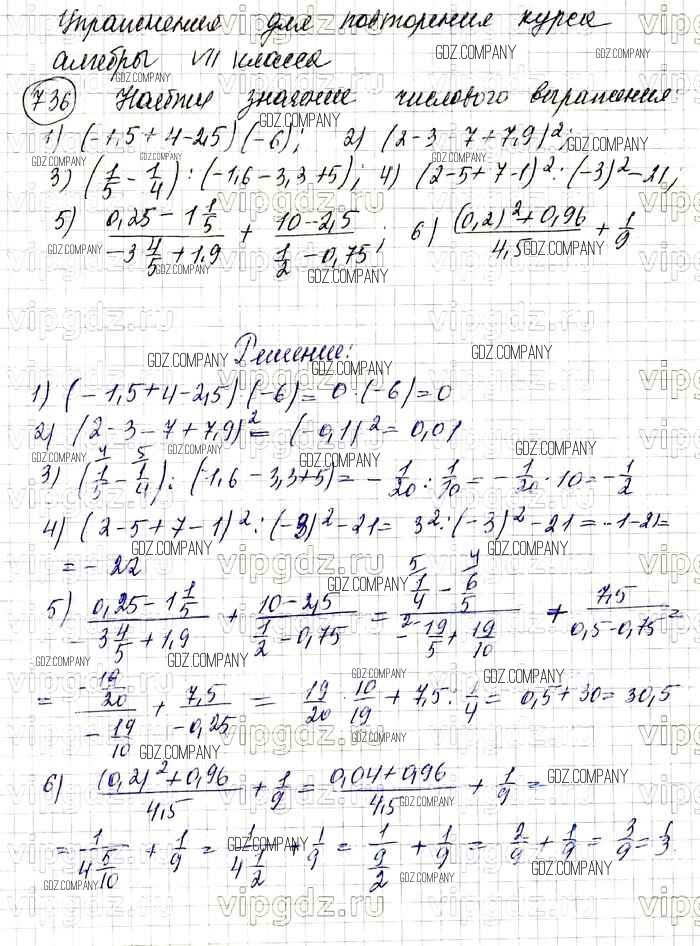 Упражнения для повторения курса
алгебры VII класса
736 Найти значение числового выражения:
1) (-1,5+4-2,5)(-6); 2) (2-3-7+7,9)²;
3) (1/5 - 1/4) : (-1,6-3,3+5); 4) (2-5+7-1)² : (-3)² - 21;
5) (0,25 - 1 1/5)/(-3 4/5 + 1,9) + (10-2,5)/(1/2 - 0,75); 6) ((0,2)² + 0,96)/4,5 + 1/9
Решение:
1) (-1,5+4-2,5)(-6) = 0·(-6) = 0
2) (2-3-7+7,9)² = (-0,1)² = 0,01
3) (1/5 - 1/4) : (-1,6-3,3+5) = -1/20 : 1/10 = -1/20 · 10 = -1/2
4) (2-5+7-1)² : (-3)² - 21 = 3² : (-3)² - 21 = -1-21=
= -22
5) (0,25 - 1 1/5)/(-3 4/5 + 1,9) + (10-2,5)/(1/2 - 0,75) = (1/4 - 6/5)/(-19/5 + 19/10) + 7,5/(0,5-0,75) =
= (-19/20)/(-19/10) + 7,5/(-0,25) = 19/20 · 10/19 + 7,5 : 1/4 = 0,5+30 = 30,5
6) ((0,2)² + 0,96)/4,5 + 1/9 = (0,04+0,96)/4,5 + 1/9 =
= 1/(4 5/10) + 1/9 = 1/(4 1/2) + 1/9 = 1/(9/2) + 1/9 = 2/9 + 1/9 = 3/9 = 1/3